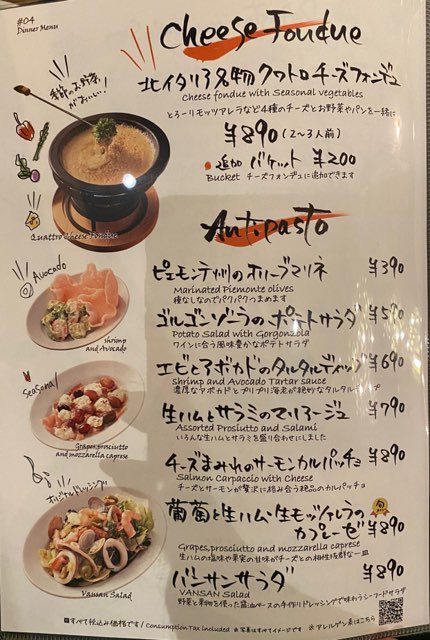 #04
Dinner Menu
Cheese Fondue
季節のお野菜がおいしい!
北イタリア名物 クワトロチーズフォンデュ
Cheese fondue with Seasonal vegetables
とろーりモッツアレラなど4種のチーズとお野菜やパンを一緒に
¥890 (2〜3人前)
追加 バケット ¥200
Bucket チーズフォンデュに追加できます
Quattro Cheese Fondue
Antipasto
Avocado
shrimp
and Avocado
ピエモンテ州のオリーブマリネ ¥390
Marinated Piemonte olives
種なしなのでパクパクつまめます
ゴルゴンゾーラのポテトサラダ ¥590
Potato Salad with Gorgonzola
ワインに合う風味豊かなポテトサラダ
エビとアボカドのタルタルディップ ¥690
Shrimp and Avocado Tartar sauce
濃厚なアボカドとプリプリ海老が絶妙なタルタル
Seasonal
Grapes,prosciutto
and mozzarella caprese
生ハムとサラミのマリアージュ ¥790
Assorted Prosiutto and Salami
いろんな生ハムとサラミを盛り合わせにしました
チーズまみれのサーモンカルパッチョ ¥890
Salmon Carpaccio with Cheese
チーズとサーモンが贅沢に絡み合う絶品のカルパッチョ
オリジナルドレッシング
Vansan Salad
葡萄と生ハム・生モッツァレラの
カプレーゼ ¥890
Grapes,prosciutto and mozzarella caprese
生ハムの塩味や果実の甘味がチーズとの相性抜群な一皿
バンサンサラダ ¥890
VANSAN Salad
野菜と果物を使った醤油ベースの手作りドレッシングで味わうシーフードサラダ
すべて税込み価格です / Consumption Tax included ※写真はすべてイメージです ※アレルゲン表はこちら